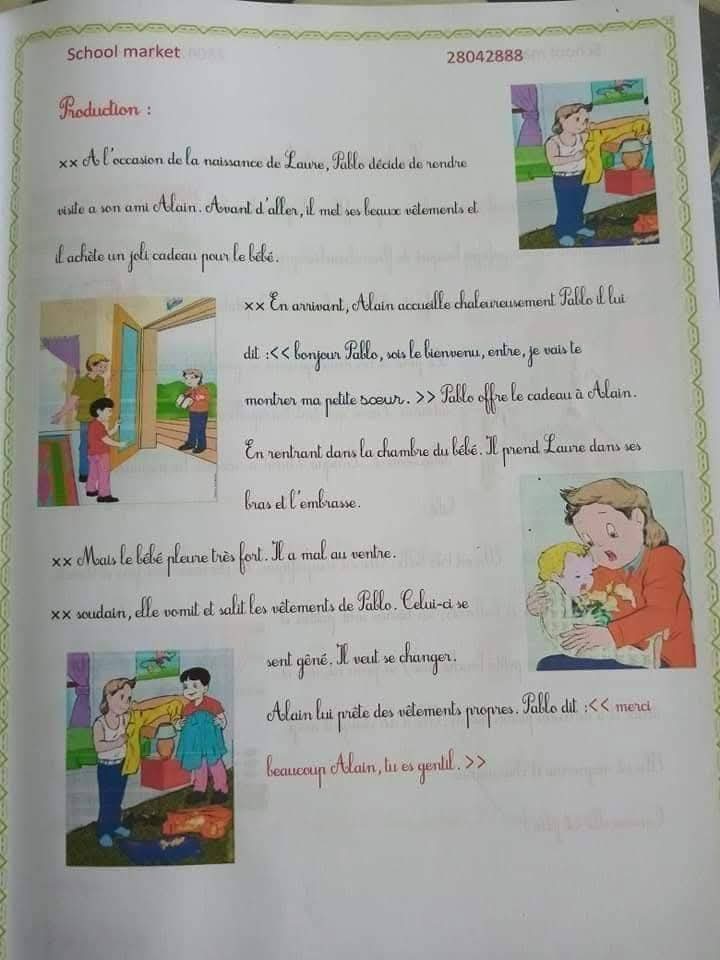 School market
28042888
Production :
xx A l'occasion de la naissance de Laure, Pablo décide de rendre
visite a son ami Alain. Avant d'aller, il met ses beaux vêtements et
il achète un joli cadeau pour le bébé.
xx En arrivant, Alain accueille chaleureusement Pablo il lui
dit :<< bonjour Pablo, sois le bienvenu, entre, je vais te
montrer ma petite sœur. >> Pablo offre le cadeau à Alain.
En rentrant dans la chambre du bébé. Il prend Laure dans ses
bras et l'embrasse.
xx Mais le bébé pleure très fort. Il a mal au ventre.
xx soudain, elle vomit et salit les vêtements de Pablo. Celui-ci se
sent gêné. Il veut se changer.
Alain lui prête des vêtements propres. Pablo dit :<< merci
beaucoup Alain, tu es gentil. >>